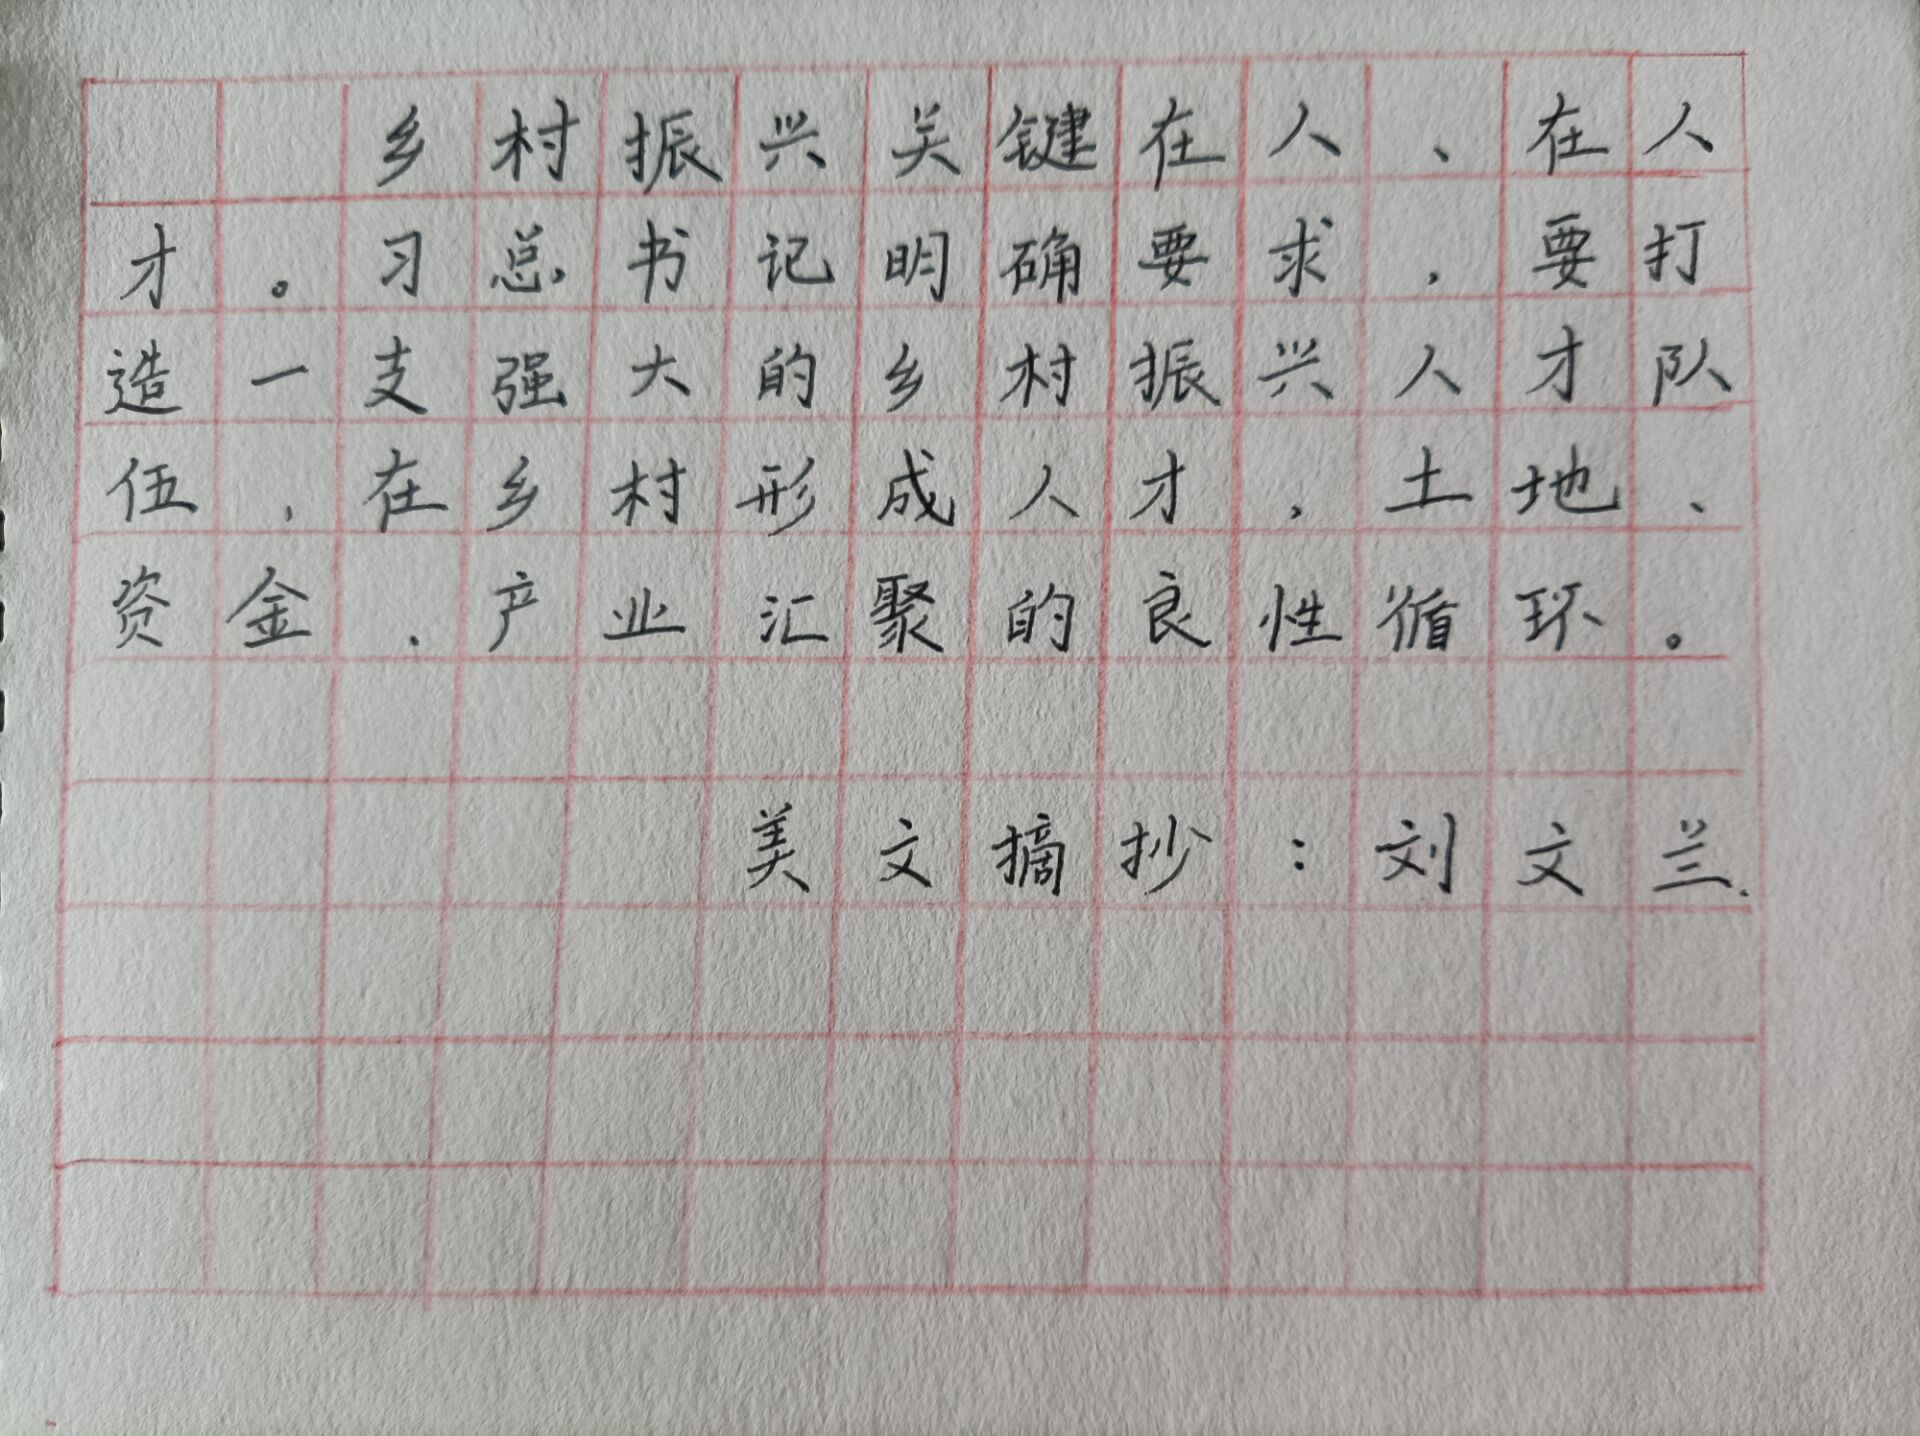 乡村振兴关键在人、在人
才。习总书记明确要求，要打
造一支强大的乡村振兴人才队
伍，在乡村形成人才，土地、
资金、产业汇聚的良性循环。
美文摘抄：刘文兰.